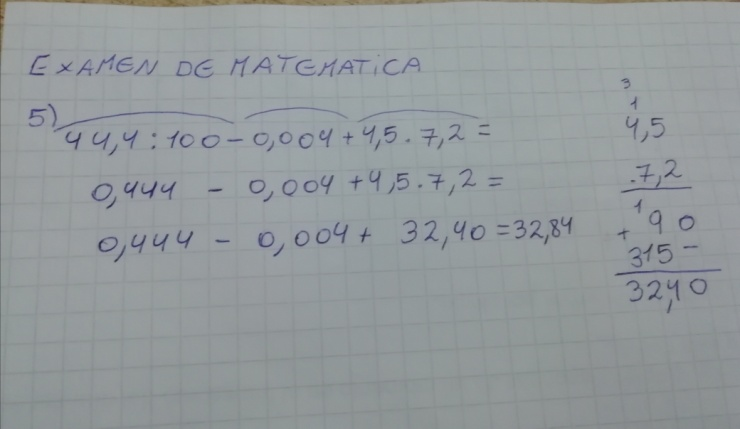 EXAMEN DE MATEMATICA
5)
44,4:100-0,004+4,5.7,2=
0,444 - 0,004+4,5.7,2=
0,444 - 0,004+ 32,40=32,84
3
1
4,5
.7,2
1
90
+
315-
32,40